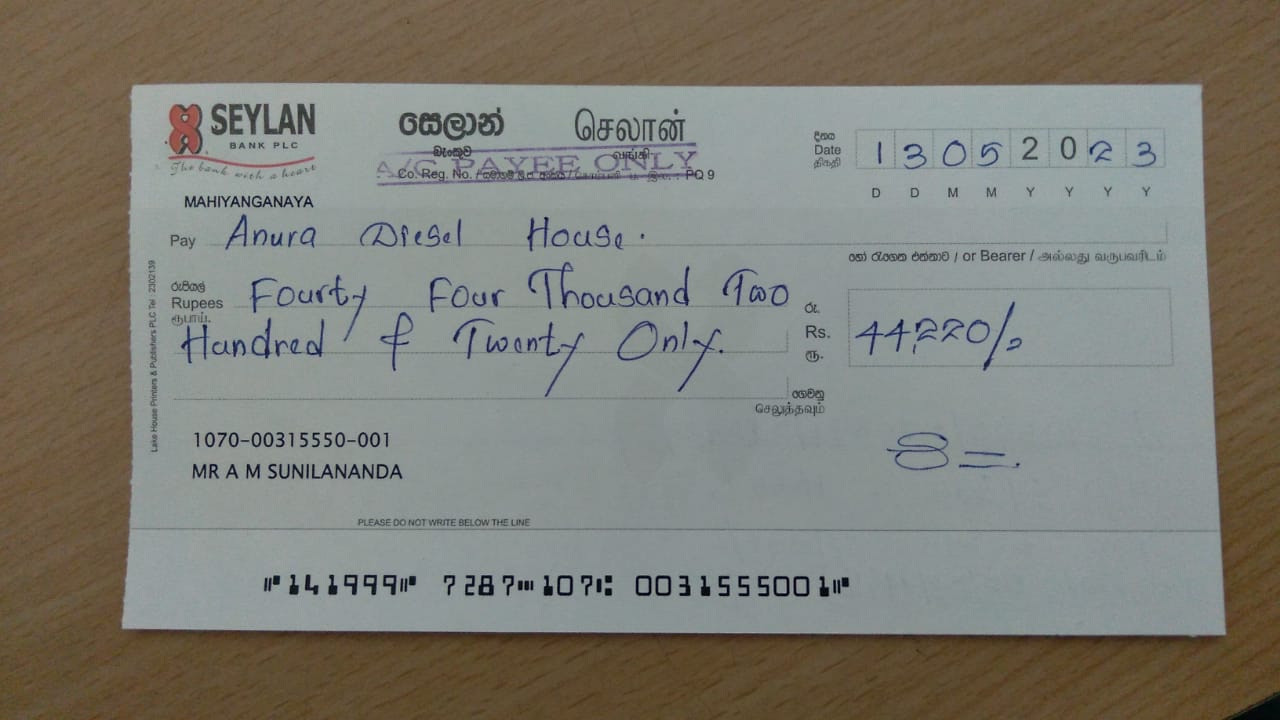 SEYLAN
BANK PLC
The bank with a heart
සෙලාන් செலான்
බැංකුව வங்கி
A/C PAYEE ONLY
Co. Reg. No. PQ 9
දිනය
Date
திகதி
1 3 0 5 2 0 2 3
D D M M Y Y Y Y
MAHIYANGANAYA
Pay Anura Diesel House.
හෝ රැගෙන එන්නාට / or Bearer / அல்லது வருபவரிடம்
රුපියල්
Rupees Fourty Four Thousand Two
ரூபாய்.
Hundred & Twenty Only.
රු.
Rs. 44,220/-
ரூ.
ගෙවනු
செலுத்தவும்
Lake House Printers & Publishers PLC Tel : 2302139
1070-00315550-001
MR A M SUNILANANDA
PLEASE DO NOT WRITE BELOW THE LINE
⑈141999⑈ 7287⑉107⑆ 0031555001⑈